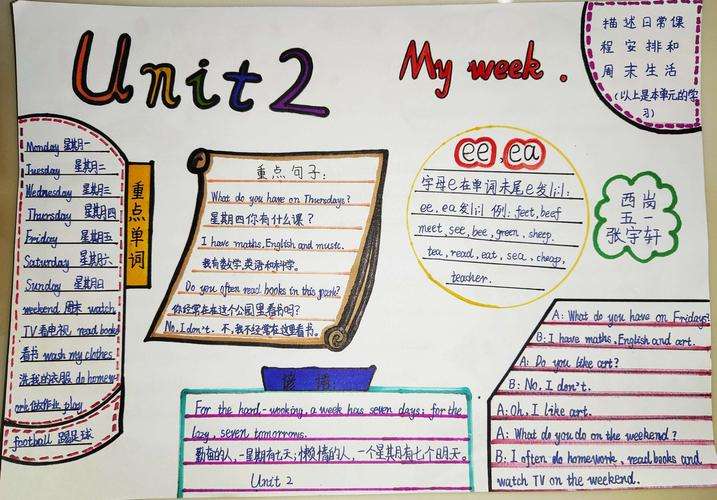 Unit 2
My week.
描述日常课
程安排和
周末生活
(以上是本单元的学
习)
Monday 星期一
Tuesday 星期二
Wednesday 星期三
Thursday 星期四
Friday 星期五
Saturday 星期六
Sunday 星期日
weekend 周末 watch
TV 看电视 read books
看书 wash my clothes
洗我的衣服 do homew
ork 做作业 play
football 踢足球
重点单词
重点句子:
What do you have on Thursdays?
星期四你有什么课?
I have maths, English and music.
我有数学,英语和科学。
Do you often read books in this park?
你经常在这个公园里看书吗?
No, I don't. 不,我不经常在这里看书。
ee, ea
字母e在单词末尾e发/i:/:
ee, ea发/i:/ 例: feet, beef
meet, see, bee, green, sheep.
tea, read, eat, sea, cheap,
teacher.
西岗
五一
张宇轩
谚语
For the hard-working, a week has seven days; for the
lazy, seven tomorrows.
勤劳的人,一星期有七天;懒惰的人,一个星期有七个明天。
Unit 2
A: What do you have on Fridays?
B: I have maths, English and art.
A: Do you like art?
B: No, I don't.
A: Oh, I like art.
A: What do you do on the weekend?
B: I often do homework, read books and
watch TV on the weekend.